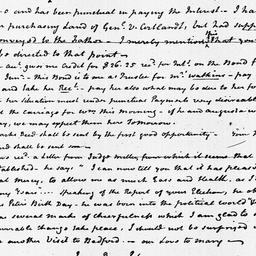 a and has been punctual in paying the Interest. I ha
purchasing Land of Genl. V. Cortlandt, but had supp
conveyed to the Father - I merely mention this that you
be directed to that point -
give me Credit for $36.25 recd for Intt. on the Bond f
this Bond is to me as Trustee for Mr. Watkins - pay
and take her Rect. - pay her also what may be due to her fo
her situation must render punctual Payments very desireable
the carriage for Wm. this Morning - if he and
we may expect them here Tomorrow.
Deed shall be sent by the first good opportunity - Your
shall be sent soon -
recd. a letter from Judge Miller, from which it seems that
established - he says "I can now tell you that it has pleased
Mercy, to allow me as much Ease and Health, as I
Years" .... Speaking of the Report of your Election, he
Peter's Birth Day - he was born into the political World
several marks of cheerfulness which I am glad to
favourable change take place, I should not be surprised
another Visit to Bedford. - our Love to Mary -